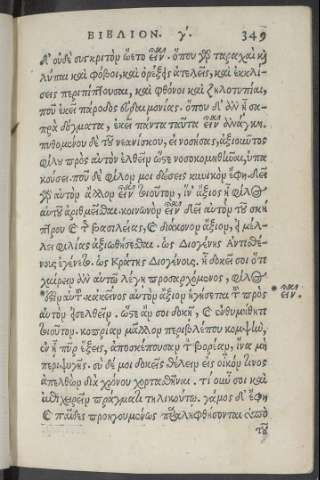 ΒΙΒΛΙΟΝ. γ΄. 349
δ' οὐδὲ συγκριτὸν ὤετο εἶναι. ὅπου γὰρ ταραχαὶ κὶ
λύπαι καὶ φόβοι, καὶ ὀρέξεις ἀτελεῖς, καὶ ἐκκλί-
σεις περιπίπτουσαι, καὶ φθόνοι καὶ ζηλοτυπίαι,
ποῦ ἐκεῖ πάροδος εὐδαιμονίας. ὅπου δ' ἂν ᾖ σα-
πρὰ δόγματα, ἐκεῖ πάντα ταῦτα εἶναι ἀνάγκη.
πυθομένου δὲ τοῦ νεανίσκου, εἰ νοσήσας, ἀξιοῦντος
φίλου πρὸς αὐτὸν ἐλθεῖν ὥστε νοσοκομηθῆναι, ὑπα
κούσει. ποῦ δὲ φίλον μοι δώσεις κυνικὸν ἔφη. δεῖ
γὰρ αὐτὸν ἄλλον εἶναι τοιοῦτον, ἵν' ἄξιος ᾖ φίλος
αὐτοῦ ἀριθμεῖσθαι. κοινωνὸν εἶναι δεῖ αὐτὸν τοῦ σκή
πτρου καὶ τῆς βασιλείας, καὶ διάκονον ἄξιον, εἰ μέλ-
λει φιλίας ἀξιωθήσεσθαι. ὡς Διογένης Ἀντισθέ-
νους ἐγένετο. ὡς Κράτης Διογένους. ἢ δοκεῖ σοι ὅτι
χαίρειν ἂν αὐτῷ λέγῃ προσερχόμενος, φίλος
ἐστὶν αὐτοῦ κἀκεῖνος αὐτὸν ἄξιον ἡγήσεται τοῦ πρὸς
αὐτὸν εἰσελθεῖν. ὥστε ἄν σοι δοκῇ, καὶ ἐνθυμήθητι
τοιοῦτον. κοπρίαν μᾶλλον περιβλέπου κομψὴν,
ἐν ᾗ πῦρ ἕξεις, ἀποσκέπουσαν τὸν βορέαν, ἵνα μὴ
περιψυγῇς. σὺ δέ μοι δοκεῖς θέλειν εἰς οἶκόν τινος
ἀπελθὼν διὰ χρόνου χορτασθῆναι. τί οὖν σοι καὶ
ἐπιχειρεῖν πράγματι τηλικούτῳ. γάμος δ' ἔφη
καὶ παῖδες προηγουμένως παραληφθήσονται ὑπὸ
τοῦ